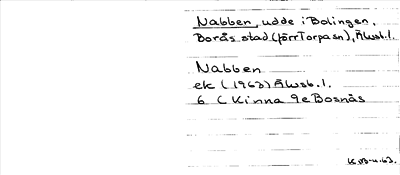 Nabben, udde i Bolingen,
Borås stad (förr Torpa sn), Älvsb. l.
Nabben
ek (1963) Älvsb. l.
6 C Kinna 9e Bosnäs